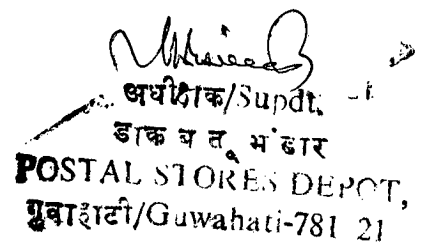 अधीक्षक/Supdt.
डाक वस्तू भंडार
POSTAL STORES DEPOT,
गुवाहाटी/Guwahati-781 21